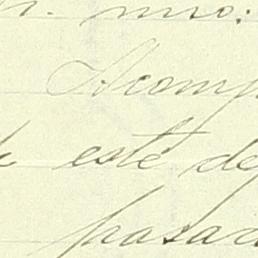 mio:
Acomp
esté de
pasar